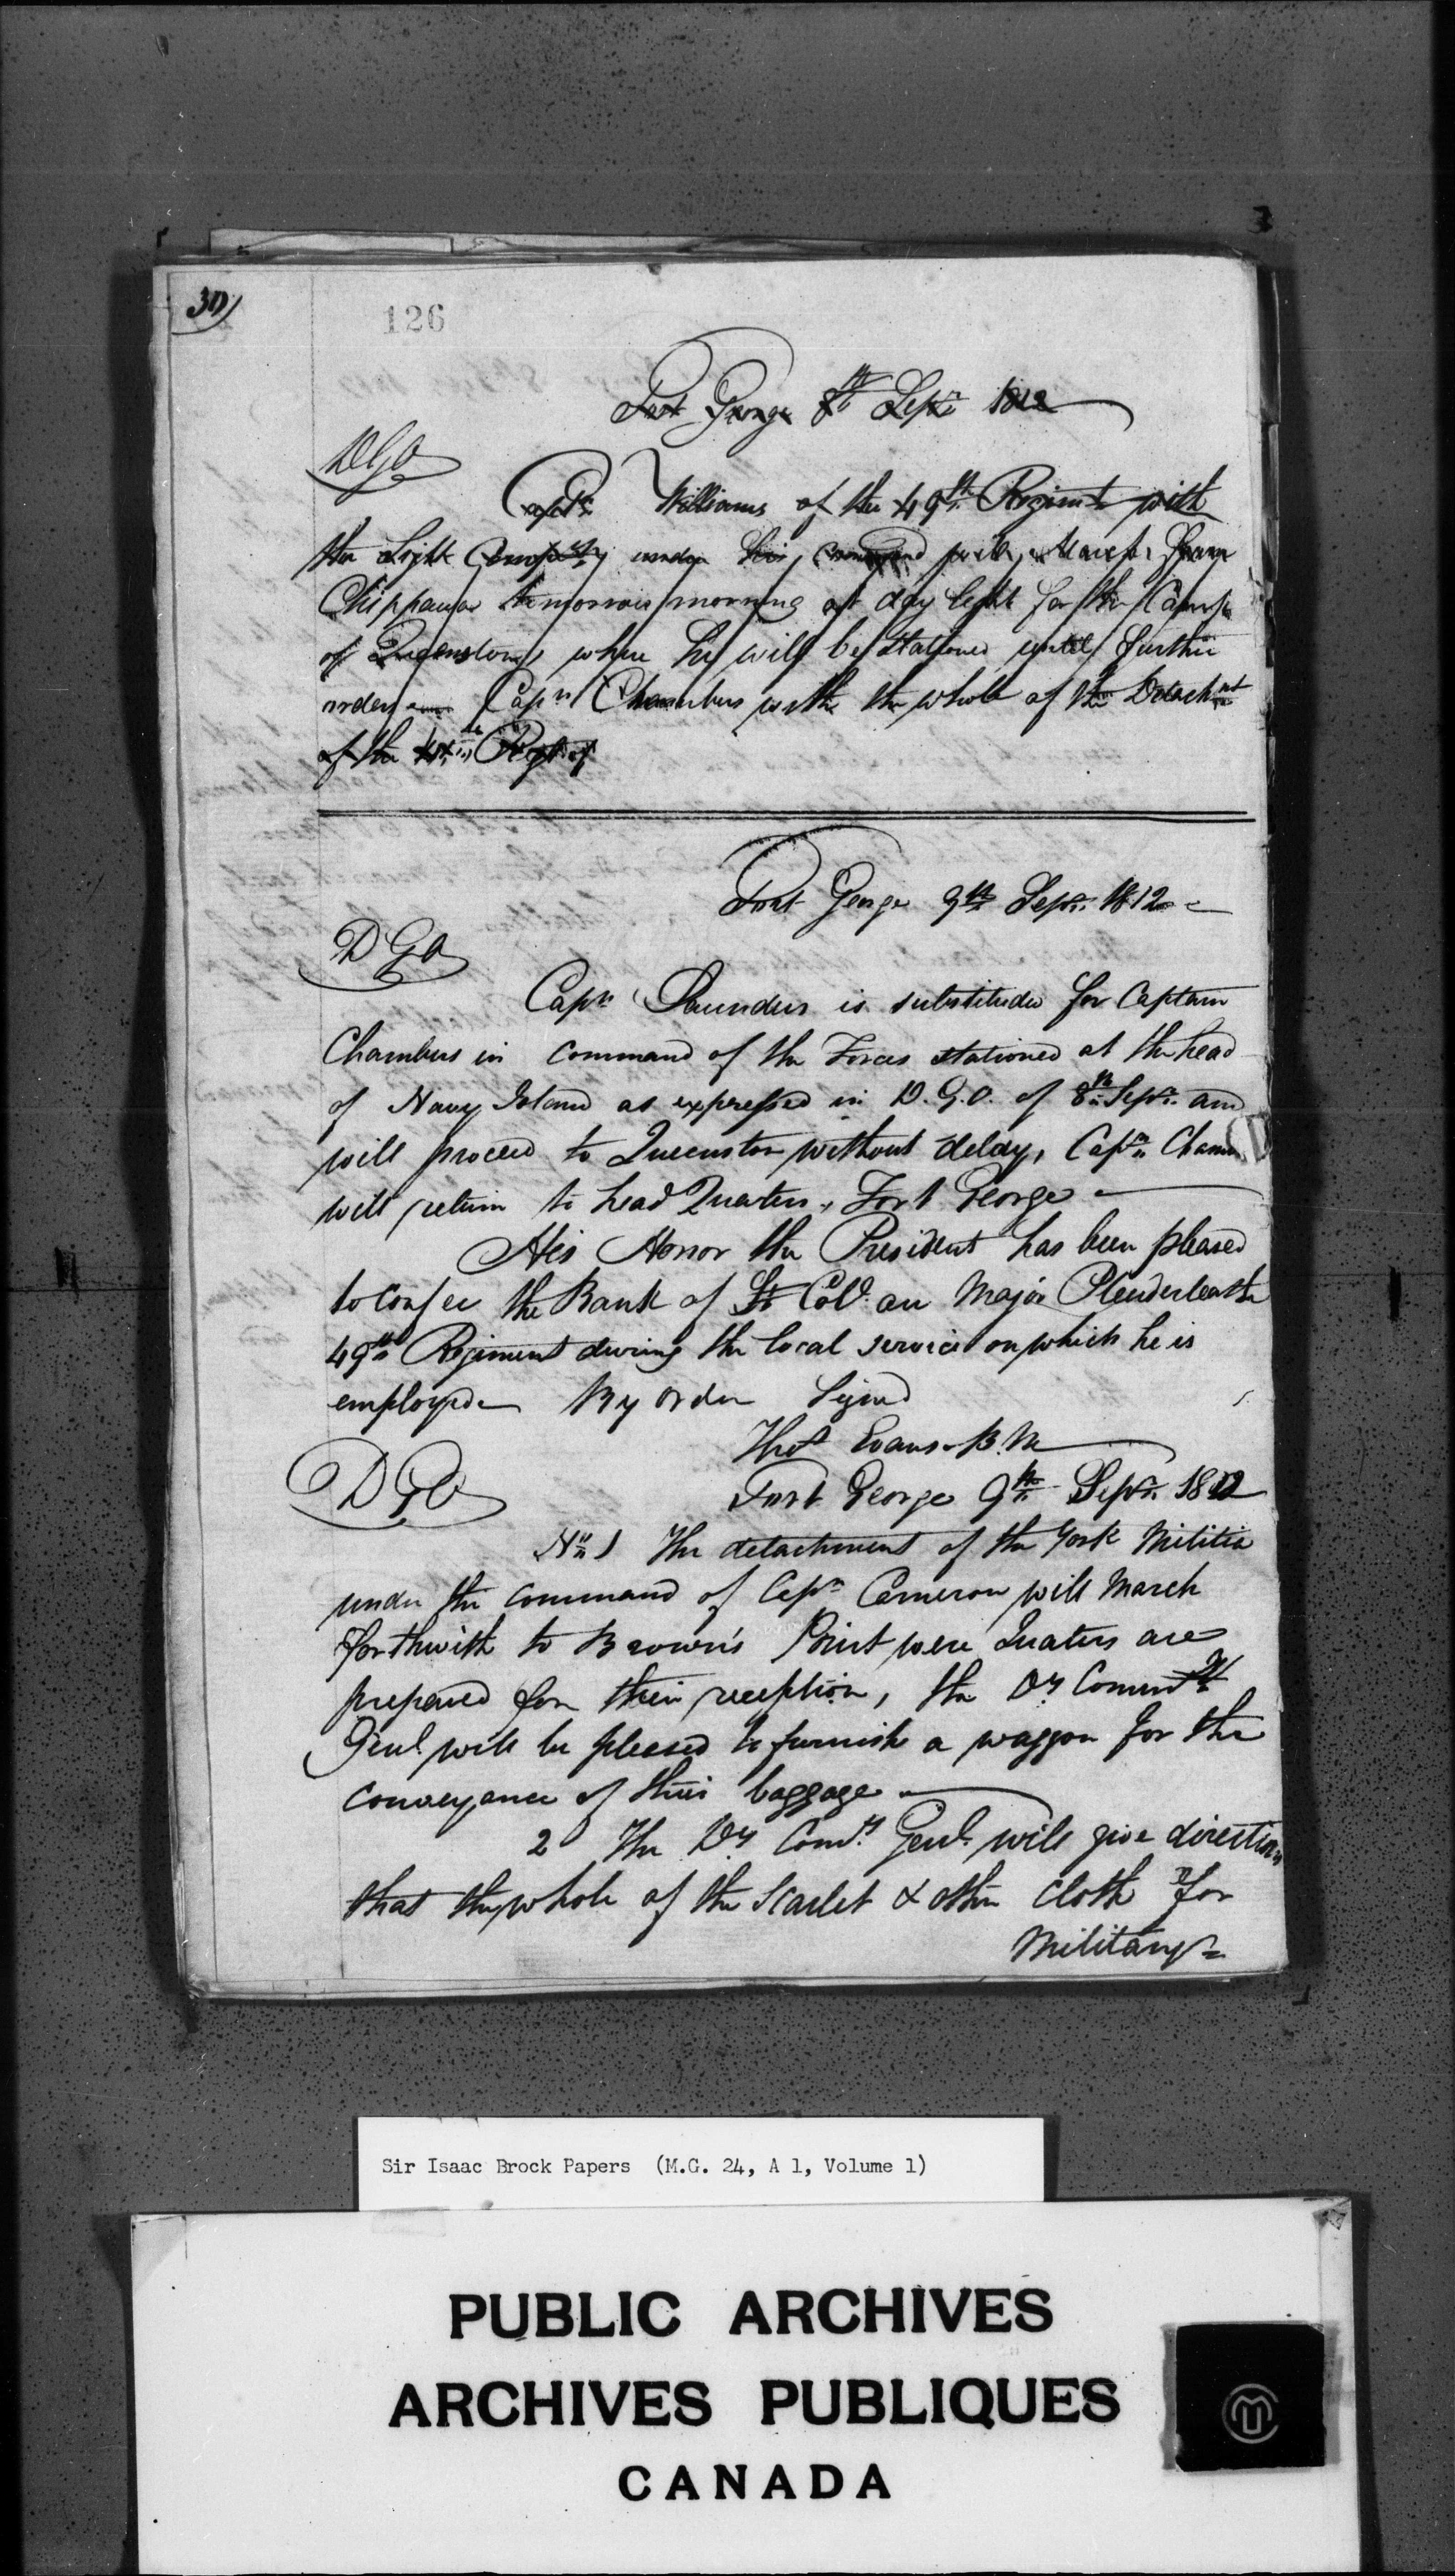 30
126
Fort George 8th Sepr 1812
DGO
Capt. Williams of the 49th Regiment with
the Light Company under his command will March from
Chippawa tomorrow morning at day light for the Camp
of Queenston, where he will be stationed until further
orders Capn Chambers with the whole of the Detachmt
of the 41st Regt of
Fort George 9th Sepr. 1812
DGO
Capn Saunders is substituted for Captain
Chambers in command of the Forces stationed at the head
of Navy Island as expressed in D.G.O. of 8th Sepr. and
will proceed to Queenston without delay, Capn Cham
will return to head Quarters, Fort George
His Honor the President has been pleased
to confer the Rank of Lt Col. on Major Plenderleath
49th Regiment during the local service on which he is
employed By order Signed
Thos Evans B.M
DGO
Fort George 9th Sepr. 1812
No. 1 The detachment of the York Militia
under the command of Capn Cameron will March
forthwith to Brown's Point were Quaters are
prepared for their reception, the Dy Commy
Genl will be pleased to furnish a waggon for the
conveyance of their baggage
2 The Dy Comy Genl. will give directions
that the whole of the Scarlet & other cloth for
Military
Sir Isaac Brock Papers (M.G. 24, A 1, Volume 1)
PUBLIC ARCHIVES
ARCHIVES PUBLIQUES
CANADA